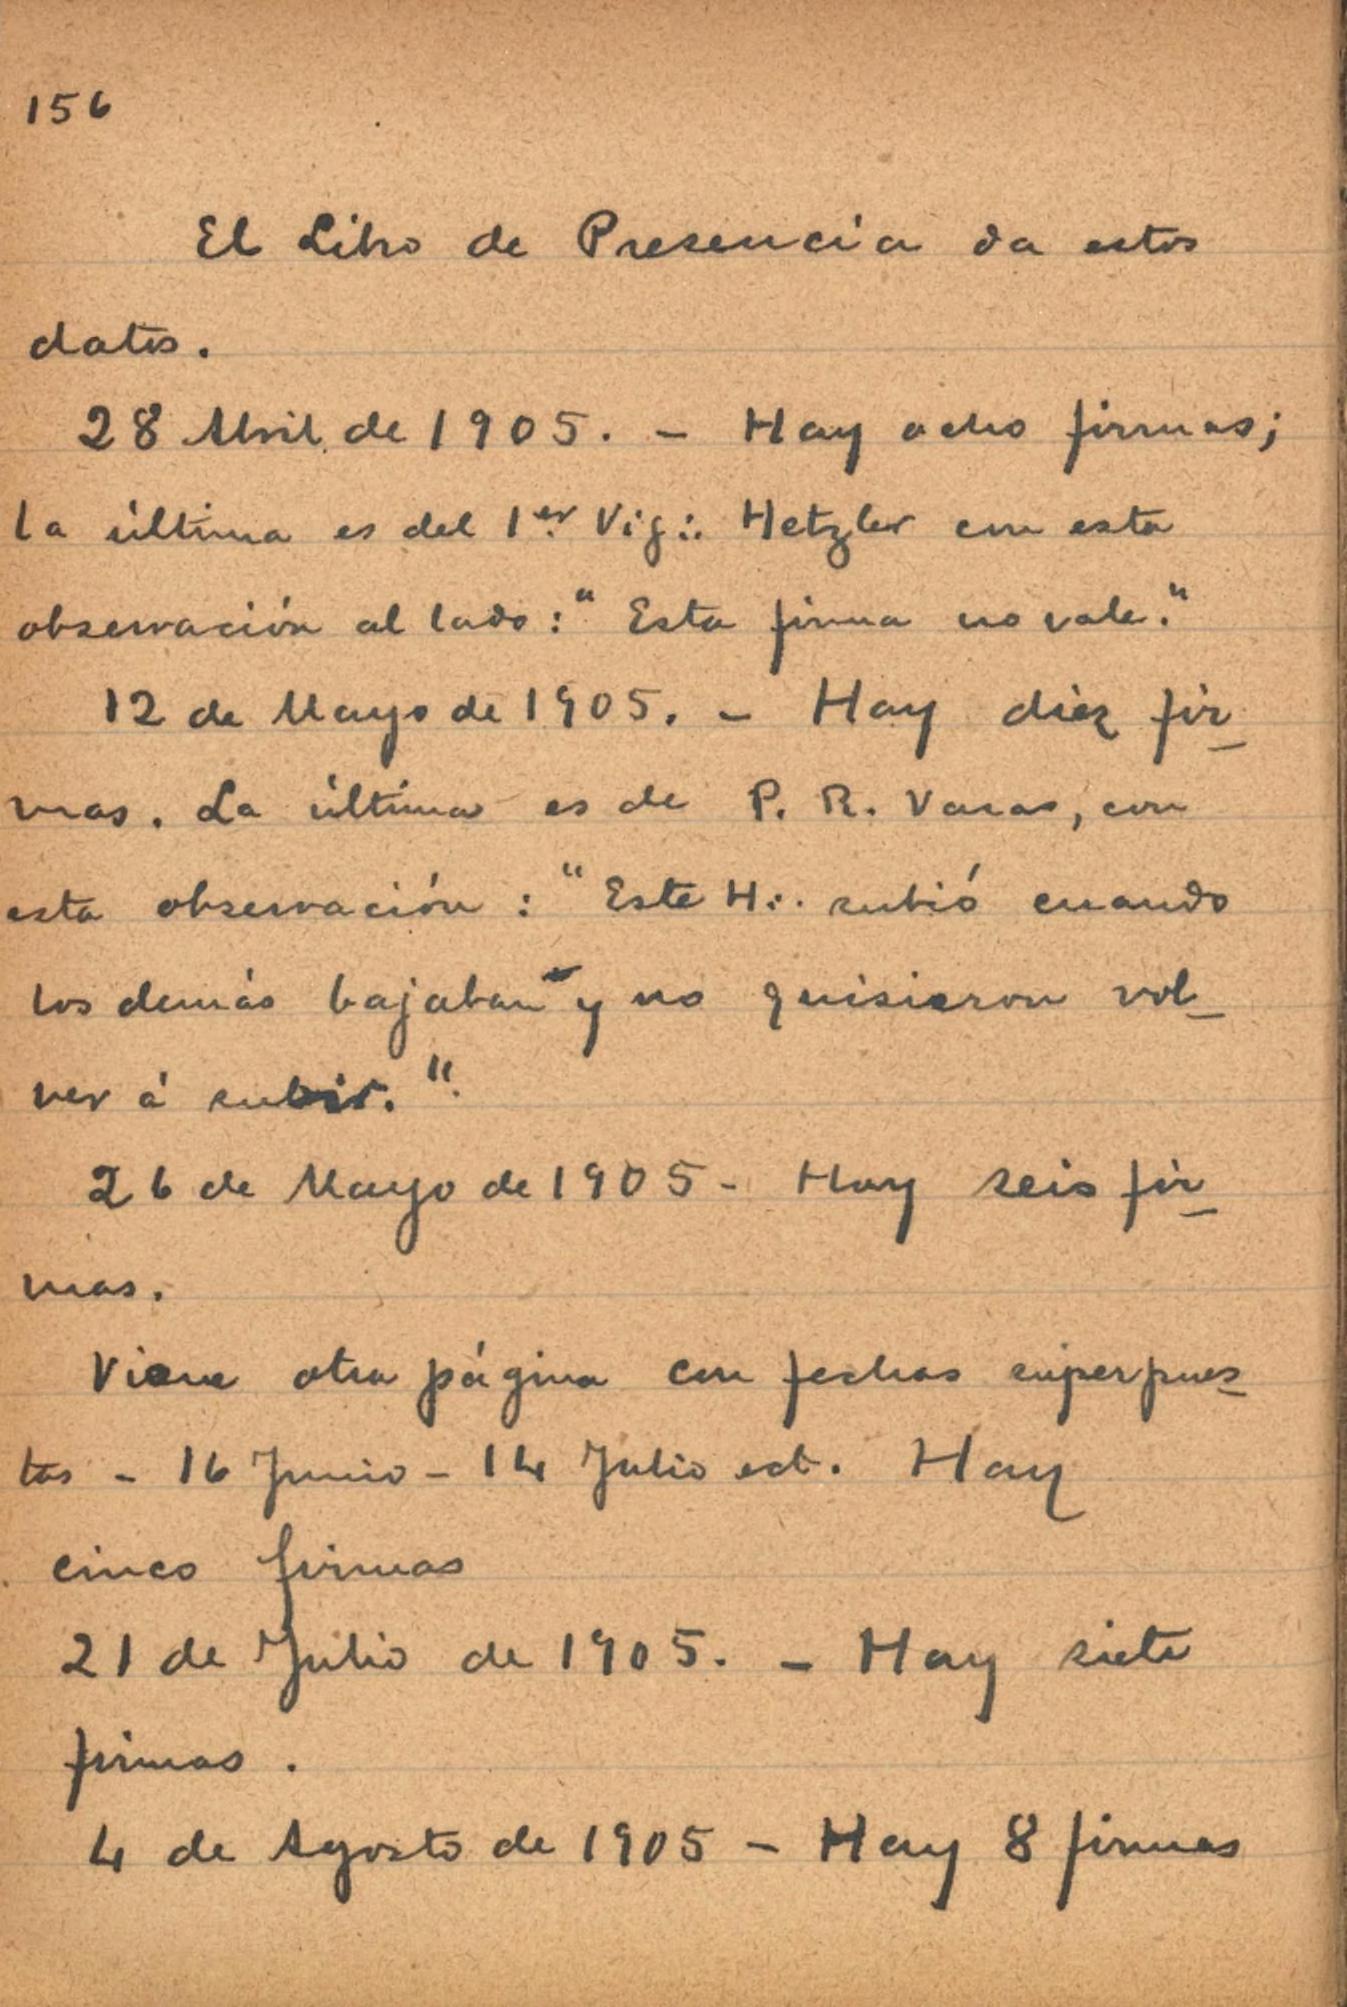 156
El Libro de Presencia da estos
datos.
28 Abril de 1905. - Hay ocho firmas;
la última es del 1er Vig∴ Hetzler con esta
observación al lado: "Esta firma no vale."
12 de Mayo de 1905. - Hay diez fir-
mas. La última es de P. R. Varas, con
esta observación: "Este H∴ subió cuando
los demás bajaban y no quisieron vol-
ver á subir."
26 de Mayo de 1905 - Hay seis fir-
mas.
Viene otra página con fechas superpues-
tas - 16 Junio - 14 Julio ect. Hay
cinco firmas
21 de Julio de 1905. - Hay siete
firmas.
4 de Agosto de 1905 - Hay 8 firmas